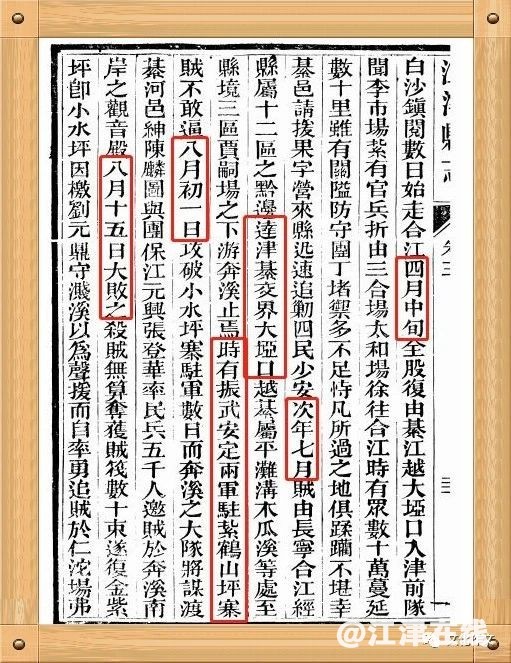 江津縣志
卷三
白沙鎮閱數日始走合江四月中旬全股復由綦江越大埡口入津前隊
聞李市場紮有官兵折由三合場太和場徐往合江時有眾數十萬蔓延
數十里雖有關隘防守團丁堵禦多不足恃凡所過之地俱蹂躪不堪幸
綦邑請撥果字營來縣迅速追勦四民少安次年七月賊由長寧合江經
縣屬十二區之黔邊達津綦交界大埡口越綦屬平灘溝木瓜溪等處至
縣境三區賈嗣場之下游奔溪止焉時有振武安定兩軍駐紮鶴山坪寨
賊不敢逼八月初一日攻破小水坪寨駐軍數日而奔溪之大隊將謀渡
綦河邑紳陳麟圖與團保江元興張登華率民兵五千人邀賊於奔溪南
岸之觀音殿八月十五日大敗之殺賊無算奪獲賊筏數十束遂復金紫
坪卽小水坪因檄劉元鼎守濺溪以為聲援而自率勇追賊於仁沱場弗
@江津在线